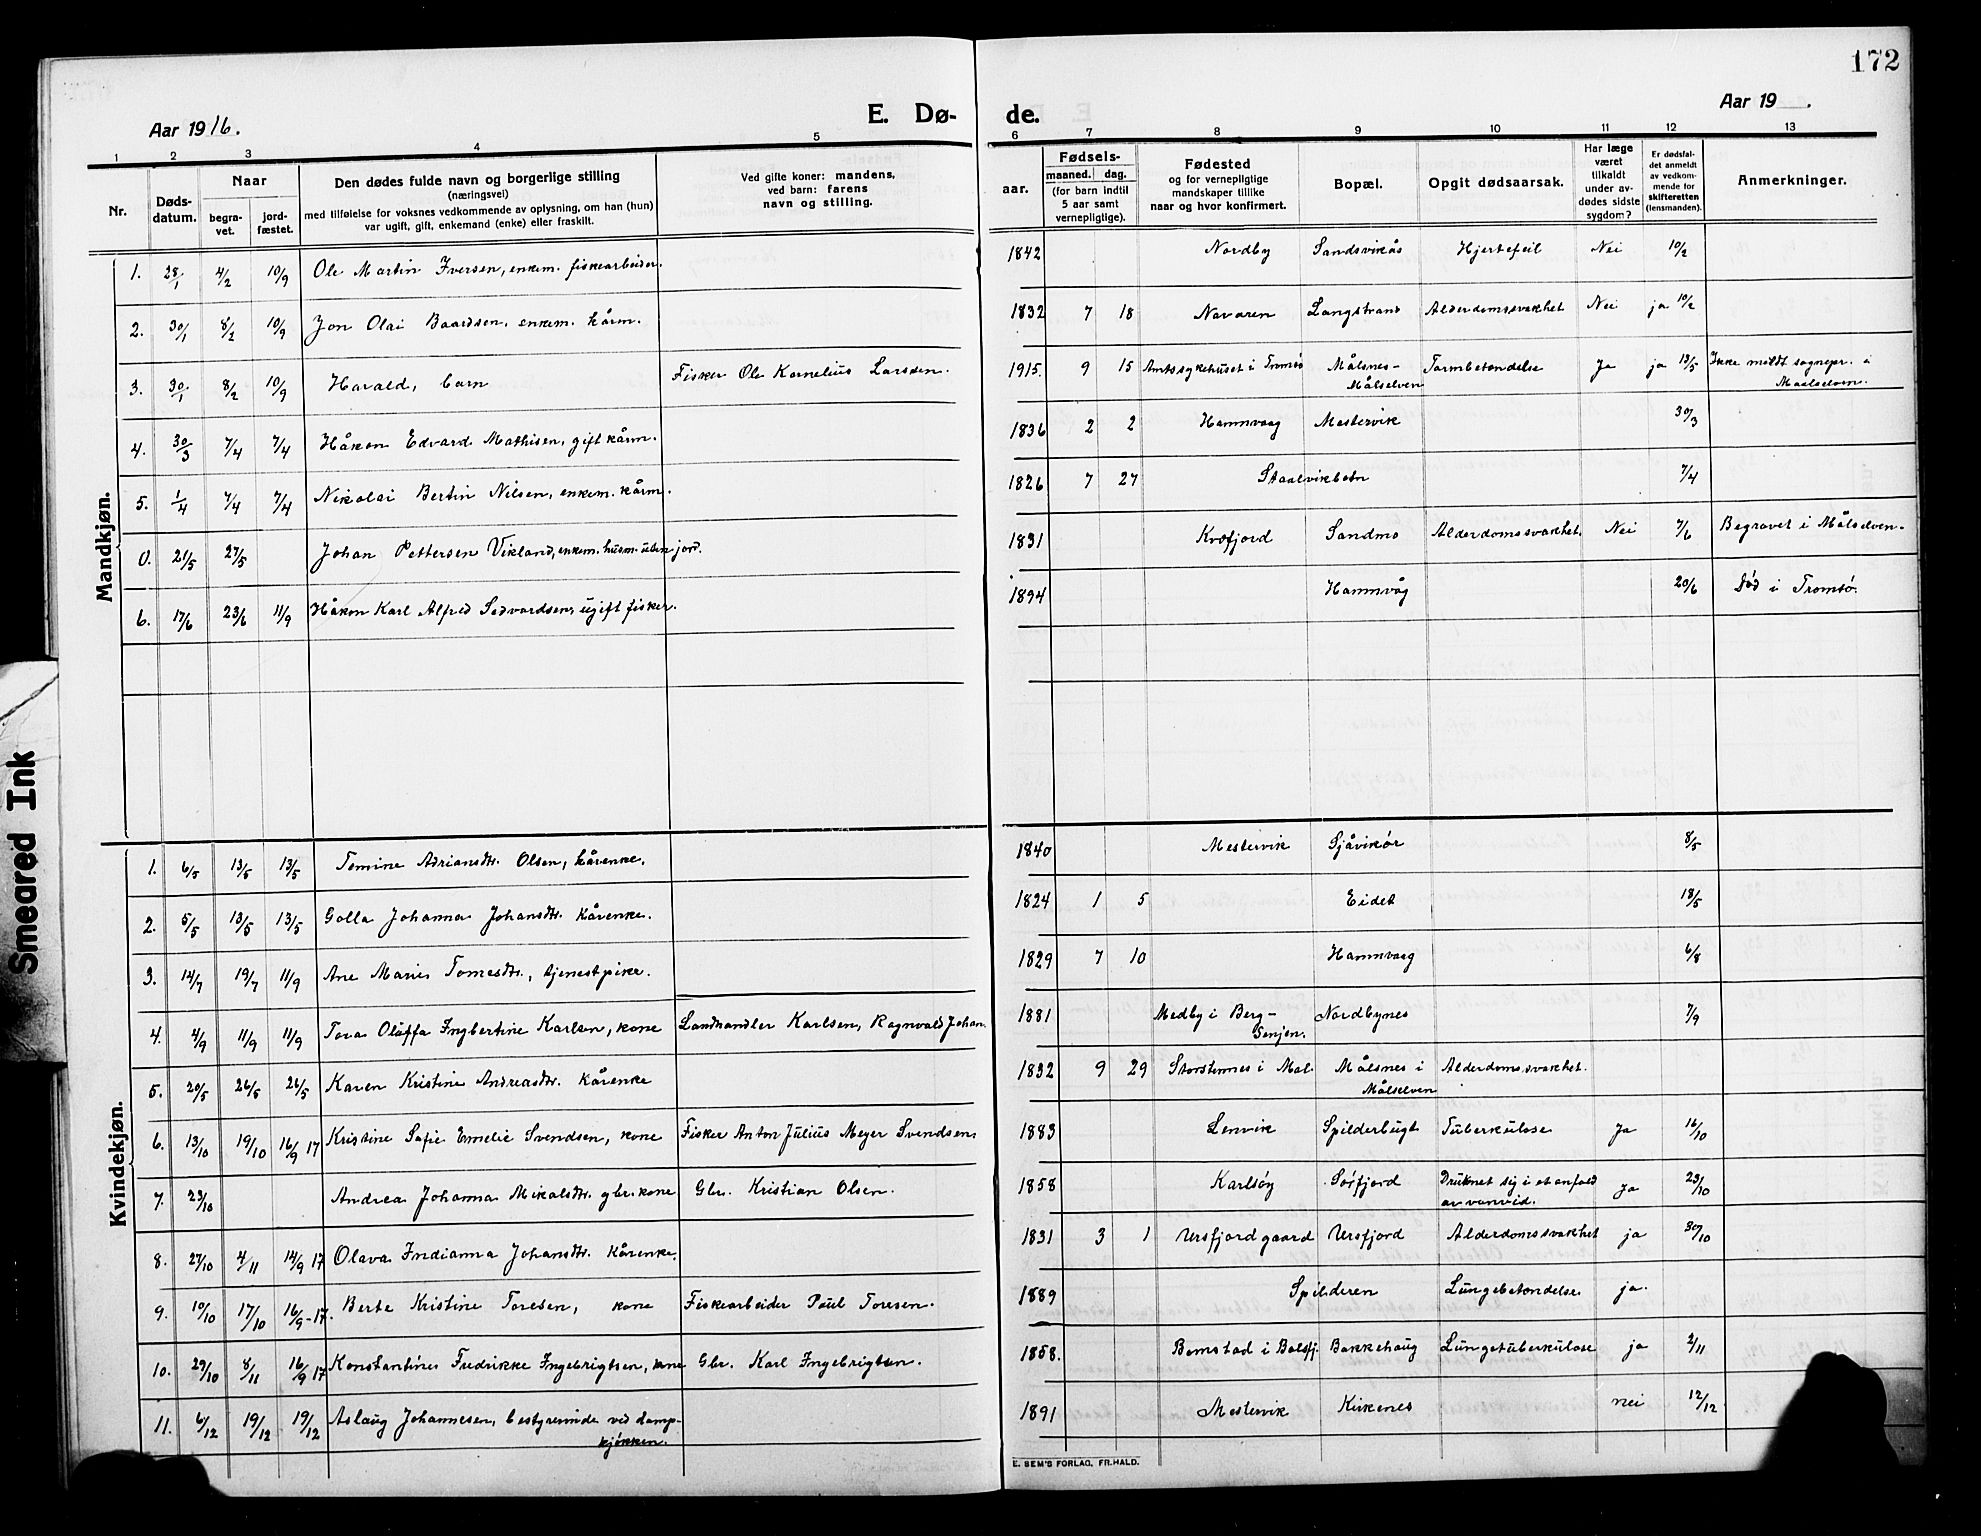 172
Aar 1916.
E. Dø-
de.
Aar 19 .
1 2 3 4 5 6 7 8 9 10 11 12 13
Nr.
Døds-
datum.
Naar
begra-
vet.
jord-
fæstet.
Den dødes fulde navn og borgerlige stilling
(næringsvei)
med tilføielse for voksnes vedkommende av oplysning, om han (hun)
var ugift, gift, enkemand (enke) eller fraskilt.
Ved gifte koner: mandens,
ved barn: farens
navn og stilling.
Fødsels-
aar.
maaned. dag.
(for barn indtil
5 aar samt
vernepligtige).
Fødested
og for vernepligtige
mandskaper tillike
naar og hvor konfirmert.
Bopæl.
Opgit dødsaarsak.
Har læge
været
tilkaldt
under av-
dødes sidste
sygdom?
Er dødsfal-
det anmeldt
av vedkom-
mende for
skifteretten
(lensmanden).
Anmerkninger.
Mandkjøn.
1. 28/1 4/2 10/9 Ole Martin Iversen, enkem. fiskearbeider. 1842 Nordby Sandsvikås Hjertefeil Nei 10/2
2. 30/1 8/2 10/9 Jon Olai Baardsen, enkem. kårm. 1832 7 18 Navaren Langstrand Alderdomssvakhet Nei ja 10/2
3. 30/1 8/2 10/9 Harald, barn Fisker Ole Kornelius Larsen. 1915. 9 15 Amtssykehuset i Tromsø Målsnes- Tarmbetændelse Ja ja 13/5 Ikke meldt sognepr. i
Målselven Maalselven.
4. 30/3 7/4 7/4 Håkon Edvard Mathisen, gift kårm. 1836 2 2 Hamnvaag Mestervik 30/3
5. 1/4 7/4 7/4 Nikolai Bertin Nilsen, enkem. kårm. 1826 7 27 Staalvikbotn 7/4
0. 21/5 27/5 Johan Pettersen Vikland, enkem. husm. uten jord. 1831 Kvæfjord Sandmo Alderdomssvakhet. Nei 7/6 Begravet i Målselven.
6. 17/6 23/6 11/9 Håkon Karl Alfred Sedvardsen, ugift fisker. 1894 Hamnvåg 20/6 Død i Tromsø.
Kvindekjøn.
1. 6/5 13/5 13/5 Tomine Adriansdtr. Olsen, kårenke. 1840 Mestervik Sjåvikør 8/5
2. 5/5 13/5 13/5 Golla Johanna Johansdtr. kårenke. 1824 1 5 Eidet 18/5
3. 14/7 19/7 11/9 Ane Marie Tomasdtr., tjenestpike. 1829 7 10 Hamnvaag 6/8
4. 4/9 11/9 11/9 Tora Olaffa Ingbertine Karlsen, kone Landhandler Karlsen, Ragnvald Johan. 1881 Medby i Berg- Nordbynes 7/9
Senjen.
5. 20/5 26/5 26/5 Karen Kristine Andreasdtr. kårenke 1832 9 29 Storstennes i Mal. Målsnes i Alderdomssvakhet.
Målselven
6. 13/10 19/10 16/9 17 Kristine Sofie Emelie Svendsen, kone Fisker Anton Julius Meyer Svendsen 1883 Lenvik Spilderbugt Tuberkulose Ja 16/10
7. 23/10 Andrea Johanna Mikalsdtr. gbr. kone Gbr. Kristian Olsen. 1858 Karlsøy Sørfjord Druknet sig i et anfald Ja 23/10
av vanvid.
8. 27/10 4/11 14/9 17 Olava Indianna Johansdtr. kårenke. 1831 3 1 Ursfjordgaard Ursfjord Alderdomssvakhet ja 30/10
9. 10/10 17/10 16/9-17. Berte Kristine Toresen, kone Fiskearbeider Paul Toresen. 1889 Spilderen Lungebetændelse ja.
10. 29/10 8/11 16/9 17 Konstantines Fredrikke Ingebrigtsen, kone Gbr. Karl Ingebrigtsen. 1858. Bomstad i Balsfj. Bakkehaug Lungetuberkulose ja 2/11
11. 6/12 19/12 19/12 Aslaug Johannesen, bestyrerinde ved damp- 1891 Mestervik Kirkenes nei 12/12
kjøkken.
E. SEM'S FORLAG, FR.HALD.
Smeared Ink